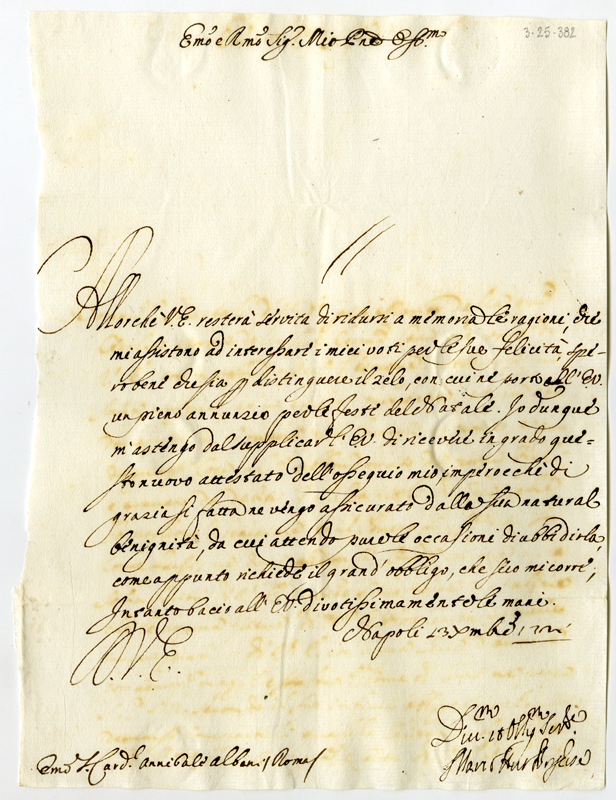 Emo e Rmo Sig. Mio Pne Colmo
3-25-382
Allorche V.E. resterà servita di ridursi a memoria le ragioni, che
mi assistono ad interessare i miei voti per le sue felicità, spe-
ro bene che sia p distinguere il zelo, con cui ne porto all'EV.
un pieno annunzio per le feste del Natale. Io dunque
m'astengo dal supplicar l'EV. di ricevere in grado que-
sto nuovo attestato dell'ossequio mio, imperocche di
grazia si fatta ne vengo assicurato dalla sua natural
benignità, da cui attendo pure le occasioni di ubbidirla,
come appunto richiede il grand'obbligo, che seco mi corre,
Intanto bacio all'EV. divotissimamente le mani.
Napoli 13 Xmbre
V.E.
Emo S. Card. Annibale Albani Roma
Div. et Obl Serv.